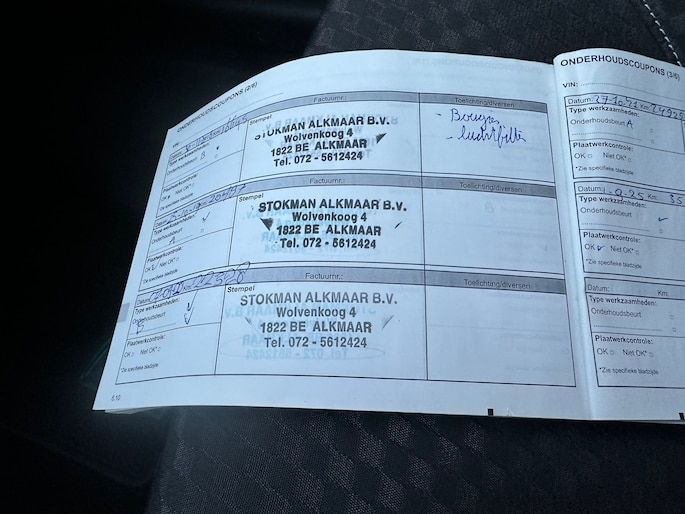 ONDERHOUDSCOUPONS (2/6)
VIN:
Factuurnr.:
Toelichting/diversen:
Stempel
STOKMAN ALKMAAR B.V.
Wolvenkoog 4
1822 BE ALKMAAR
Tel. 072 - 5612424
- Bougies
- luchtfilter
Type werkzaamheden:
Onderhoudsbeurt B
Plaatwerkcontrole:
OK Niet OK*
*Zie specifieke bladzijde
Factuurnr.:
Toelichting/diversen:
Stempel
STOKMAN ALKMAAR B.V.
Wolvenkoog 4
1822 BE ALKMAAR
Tel. 072 - 5612424
Type werkzaamheden:
Onderhoudsbeurt
A
Plaatwerkcontrole:
OK Niet OK*
*Zie specifieke bladzijde
Factuurnr.:
Toelichting/diversen:
Stempel
STOKMAN ALKMAAR B.V.
Wolvenkoog 4
1822 BE ALKMAAR
Tel. 072 - 5612424
Datum: Km: 22508
Type werkzaamheden:
Onderhoudsbeurt
B
Plaatwerkcontrole:
OK Niet OK*
*Zie specifieke bladzijde
6.10
ONDERHOUDSCOUPONS (3/6)
VIN:
Datum: 27-10-21 Km: 24925
Type werkzaamheden:
Onderhoudsbeurt A
Plaatwerkcontrole:
OK Niet OK*
*Zie specifieke bladzijde
Datum: Km: 35
Type werkzaamheden:
Onderhoudsbeurt
Plaatwerkcontrole:
OK Niet OK*
*Zie specifieke bladzijde
Datum: Km:
Type werkzaamheden:
Onderhoudsbeurt
Plaatwerkcontrole:
OK Niet OK*
*Zie specifieke bladzijde